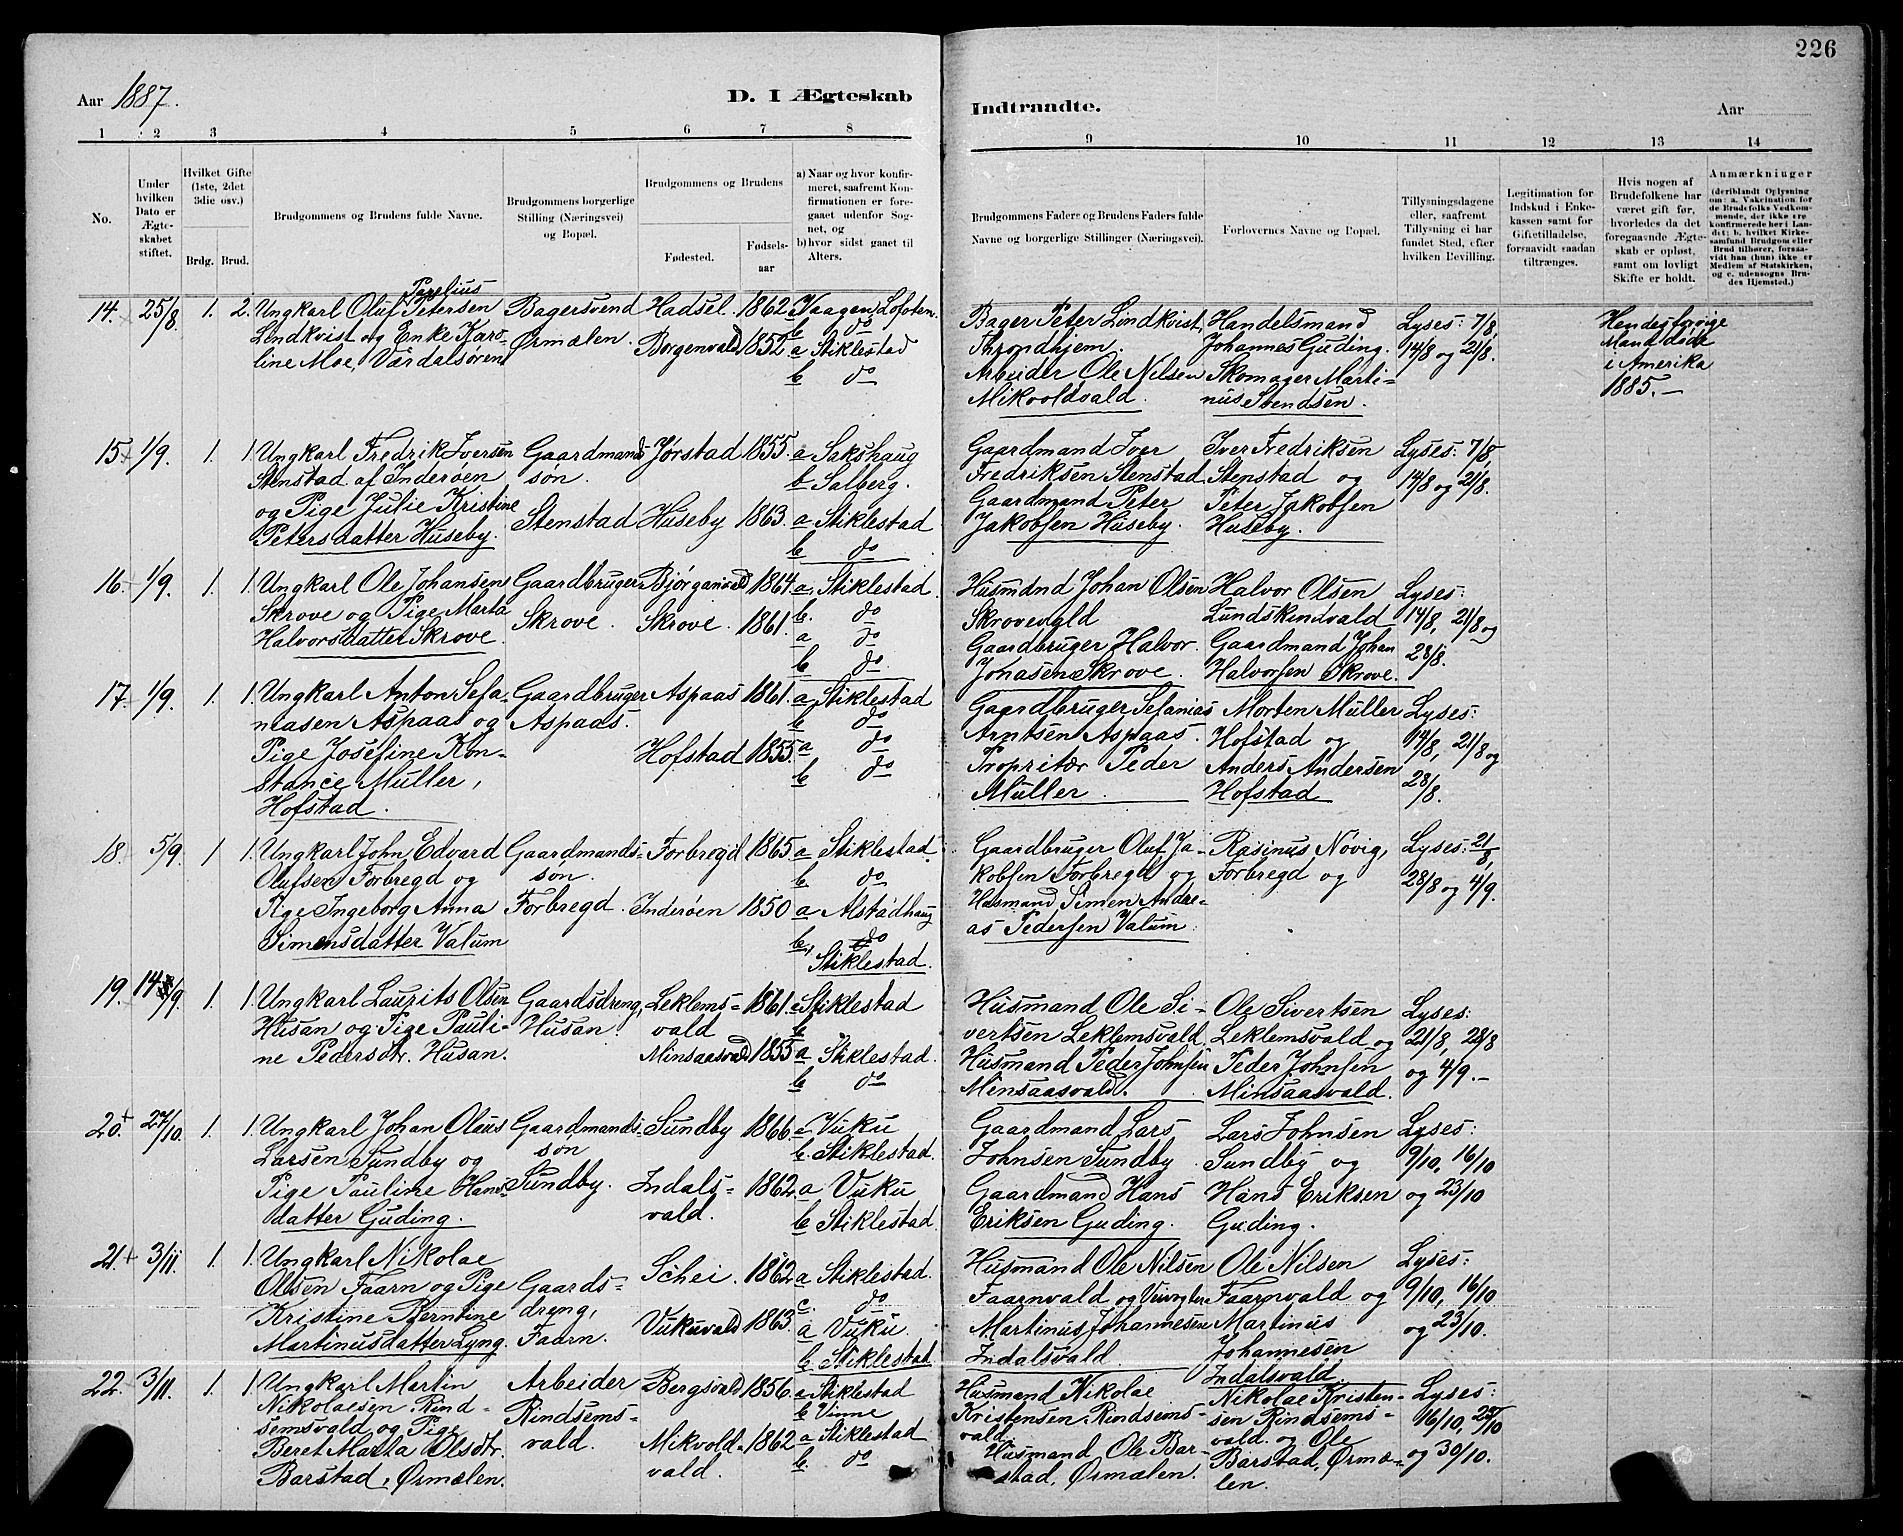 226
Aar 1887.
D. I Ægteskab
Indtraadte.
Aar
1 2 3 4 5 6 7 8
9 10 11 12 13 14
No.
Under hvilken Dato er Ægteskabet stiftet.
Hvilket Gifte (1ste, 2det 3die osv.)
Brdg. Brud.
Brudgommens og Brudens fulde Navne.
Brudgommens borgerlige Stilling (Næringsvei) og Bopæl.
Brudgommens og Brudens
Fødested.
Fødselsaar
a) Naar og hvor konfirmeret, saafremt Konfirmationen er foregaaet udenfor Sognet, og
b) hvor sidst gaaet til Alters.
Brudgommens Faders og Brudens Faders fulde Navne og borgerlige Stillinger (Næringsvei).
Forlovernes Navne og Bopæl.
Tillysningsdagene eller, saafremt Tillysning ei har fundet Sted, efter hvilken Bevilling.
Legitimation for Indskud i Enkekassen samt for Giftetilladelse, forsaavidt saadan tiltrænges.
Hvis nogen af Brudefolkene har været gift før, hvorledes da det foregaaende Ægteskab er opløst, samt om lovligt Skifte er holdt.
Anmærkninger (deriblandt Oplysning om: a. Vakcination for de Brudefolks Vedkommende, der ikke ere konfirmerede her i Landet; b. hvilket Kirkesamfund Brudgom eller Brud tilhører, forsaavidt han (hun) ikke er Medlem af Statskirken, og c. udensogns Brudes Hjemsted.)
14. 25/8. 1. 2.
Ungkarl Oluf Parelius Petersen
Lindkvist og Enke Karo-
line Moe, Værdalsøren
Bagersvend
Ørmælen.
Hadsel. 1862
Borgenvald 1852
a Vaagen, Lofoten.
b do
a Stiklestad
b do
Bager Peter Lindkvist,
Throndhjem.
Arbeider Ole Nilsen
Mikvoldvald.
Handelsmand
Johannes Guding.
Skomager Marti-
nus Svendsen.
Lyses: 7/8,
14/8 og 21/8.
Hendes forrige
Mand døde
i Amerika
1885.-
15 1/9. 1. 1.
Ungkarl Fredrik Iversen
Stenstad af Inderøen
og Pige Julie Kristine
Petersdatter Huseby.
Gaardmand-
søn.
Stenstad
Jørstad 1855.
Huseby 1863.
a Sakshaug
b Salberg.
a Stiklestad
b do
Gaardmand Iver
Fredriksen Stenstad
Gaardmand Peter
Jakobsen Huseby.
Iver Fredriksen
Stenstad og
Peter Jakobsen
Huseby.
Lyses: 7/8,
14/8 og 21/8.
16 1/9. 1. 1.
Ungkarl Ole Johansen
Skrove og Pige Marta
Halvorsdatter Skrove.
Gaardbruger
Skrove.
Bjørganvald 1864.
Skrove. 1861.
a. Stiklestad.
b. do
a do
b do
Husmand Johan Olsen
Skrovevald
Gaardbruger Halvor
Johasen Skrove.
Halvor Olsen
Lundskindvald
Gaardmand Johan
Halvorsen Skrove.
Lyses:
14/8, 21/8 og
28/8.
17 1/9. 1. 1.
Ungkarl Anton Sefa-
niasen Aspaas og
Pige Josefine Kon-
stance Müller,
Hofstad.
Gaardbruger
Aspaas.
Aspaas 1861.
Hofstad 1855.
a Stiklestad
b do
a do
b do
Gaardbruger Sefanias
Arntsen Aspaas.
Propritær Peder
Müller.
Morten Müller
Hofstad og
Anders Andersen
Hofstad
Lyses:
14/8, 21/8 og
28/8.
18. 5/9. 1 1.
Ungkarl John Edvard
Olufsen Forbregd og
Pige Ingeborg Anna
Simensdatter Valum
Gaardmands-
søn.
Forbregd.
Forbregd 1865
Inderøen 1850
a Stiklestad.
b do
a Alstadhaug
b, do
Stiklestad.
Gaardbruger Oluf Ja-
kobsen Forbregd og
Husmand Simen Andre-
as Pedersen Valum.
Rasinus Novig,
Forbregd og
Lyses: 21/8,
28/8 og 4/9.
19. 14/9. 1 1.
Ungkarl Laurits Olsen
Husan og Pige Pauli-
ne Pedersdtr. Husan.
Gaardsdreng,
Husan.
Leklems-
vald 1861.
Minsaasvald 1855
a Stiklestad
b
a Stiklestad.
b do
Husmand Ole Si-
vertsen Leklemsvald.
Husmand Peder Johnsen
Minsaasvald.
Ole Sivertsen
Leklemsvald og
Peder Johnsen
Minsaasvald.
Lyses:
21/8, 28/8
og 4/9.-
20. 27/10. 1. 1.
Ungkarl Johan Oleus
Larsen Sundby og
Pige Pauline Hans-
datter Guding.
Gaardmands-
søn
Sundby.
Sundby 1866
Indals-
vald. 1862
a Vuku
b. Stiklestad.
a Vuku
b Stiklestad.
Gaardmand Lars
Johnsen Sundby
Gaardmand Hans
Eriksen Guding.
Lars Johnsen
Sundby og
Hans Eriksen
Guding.
Lyses:
9/10, 16/10
og 23/10
21. 3/11. 1 1.
Ungkarl Nikolae
Olsen Faarn og Pige
Kristine Berntine
Martinusdatter Lyng.
Gaards-
dreng,
Faarn.
Schei. 1862
Vukuvald 1863.
a Stiklestad.
c. do
a Vuku.
b Stiklestad
Husmand Ole Nilsen
Faarnvald og
Martinus Johannesen
Indalsvald.
Ole Nilsen
Faarnvald og
Martinus
Johannesen
Indalsvald.
Lyses:
9/10, 16/10
og 23/10.
22. 3/11. 1. 1.
Ungkarl Martin
Nikolaesen Rind-
semsvald og Pige
Beret Marta Olsdtr.
Barstad, Ørmælen.
Arbeider
Rindsems-
vald.
Bergsvald 1856.
Mikvold-
vald. 1862
a Stiklestad
b Vinne
a Stiklestad
b do
Husmand Nikolae
Kristensen Rindsems-
vald.
Husmand Ole Bar-
stad, Ørmælen.
Nikolae Kristen-
sen Rindsems-
vald. og Ole
Barstad, Ørmæ-
len.
Lyses:
16/10, 23/10
og 30/10.